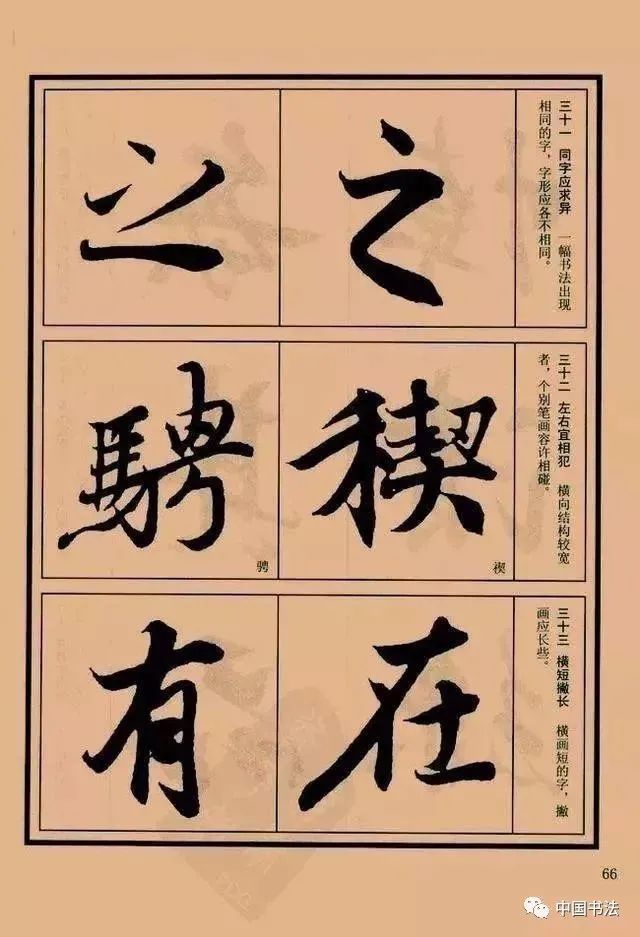 三十一 同字应求异 一幅书法出现
相同的字，字形应各不相同。
之
之
三十二 左右宜相犯 横向结构较宽
者，个别笔画容许相碰。
禊
禊
騁
骋
三十三 横短撇长 横画短的字，撇
画应长些。
在
有
66
中国书法